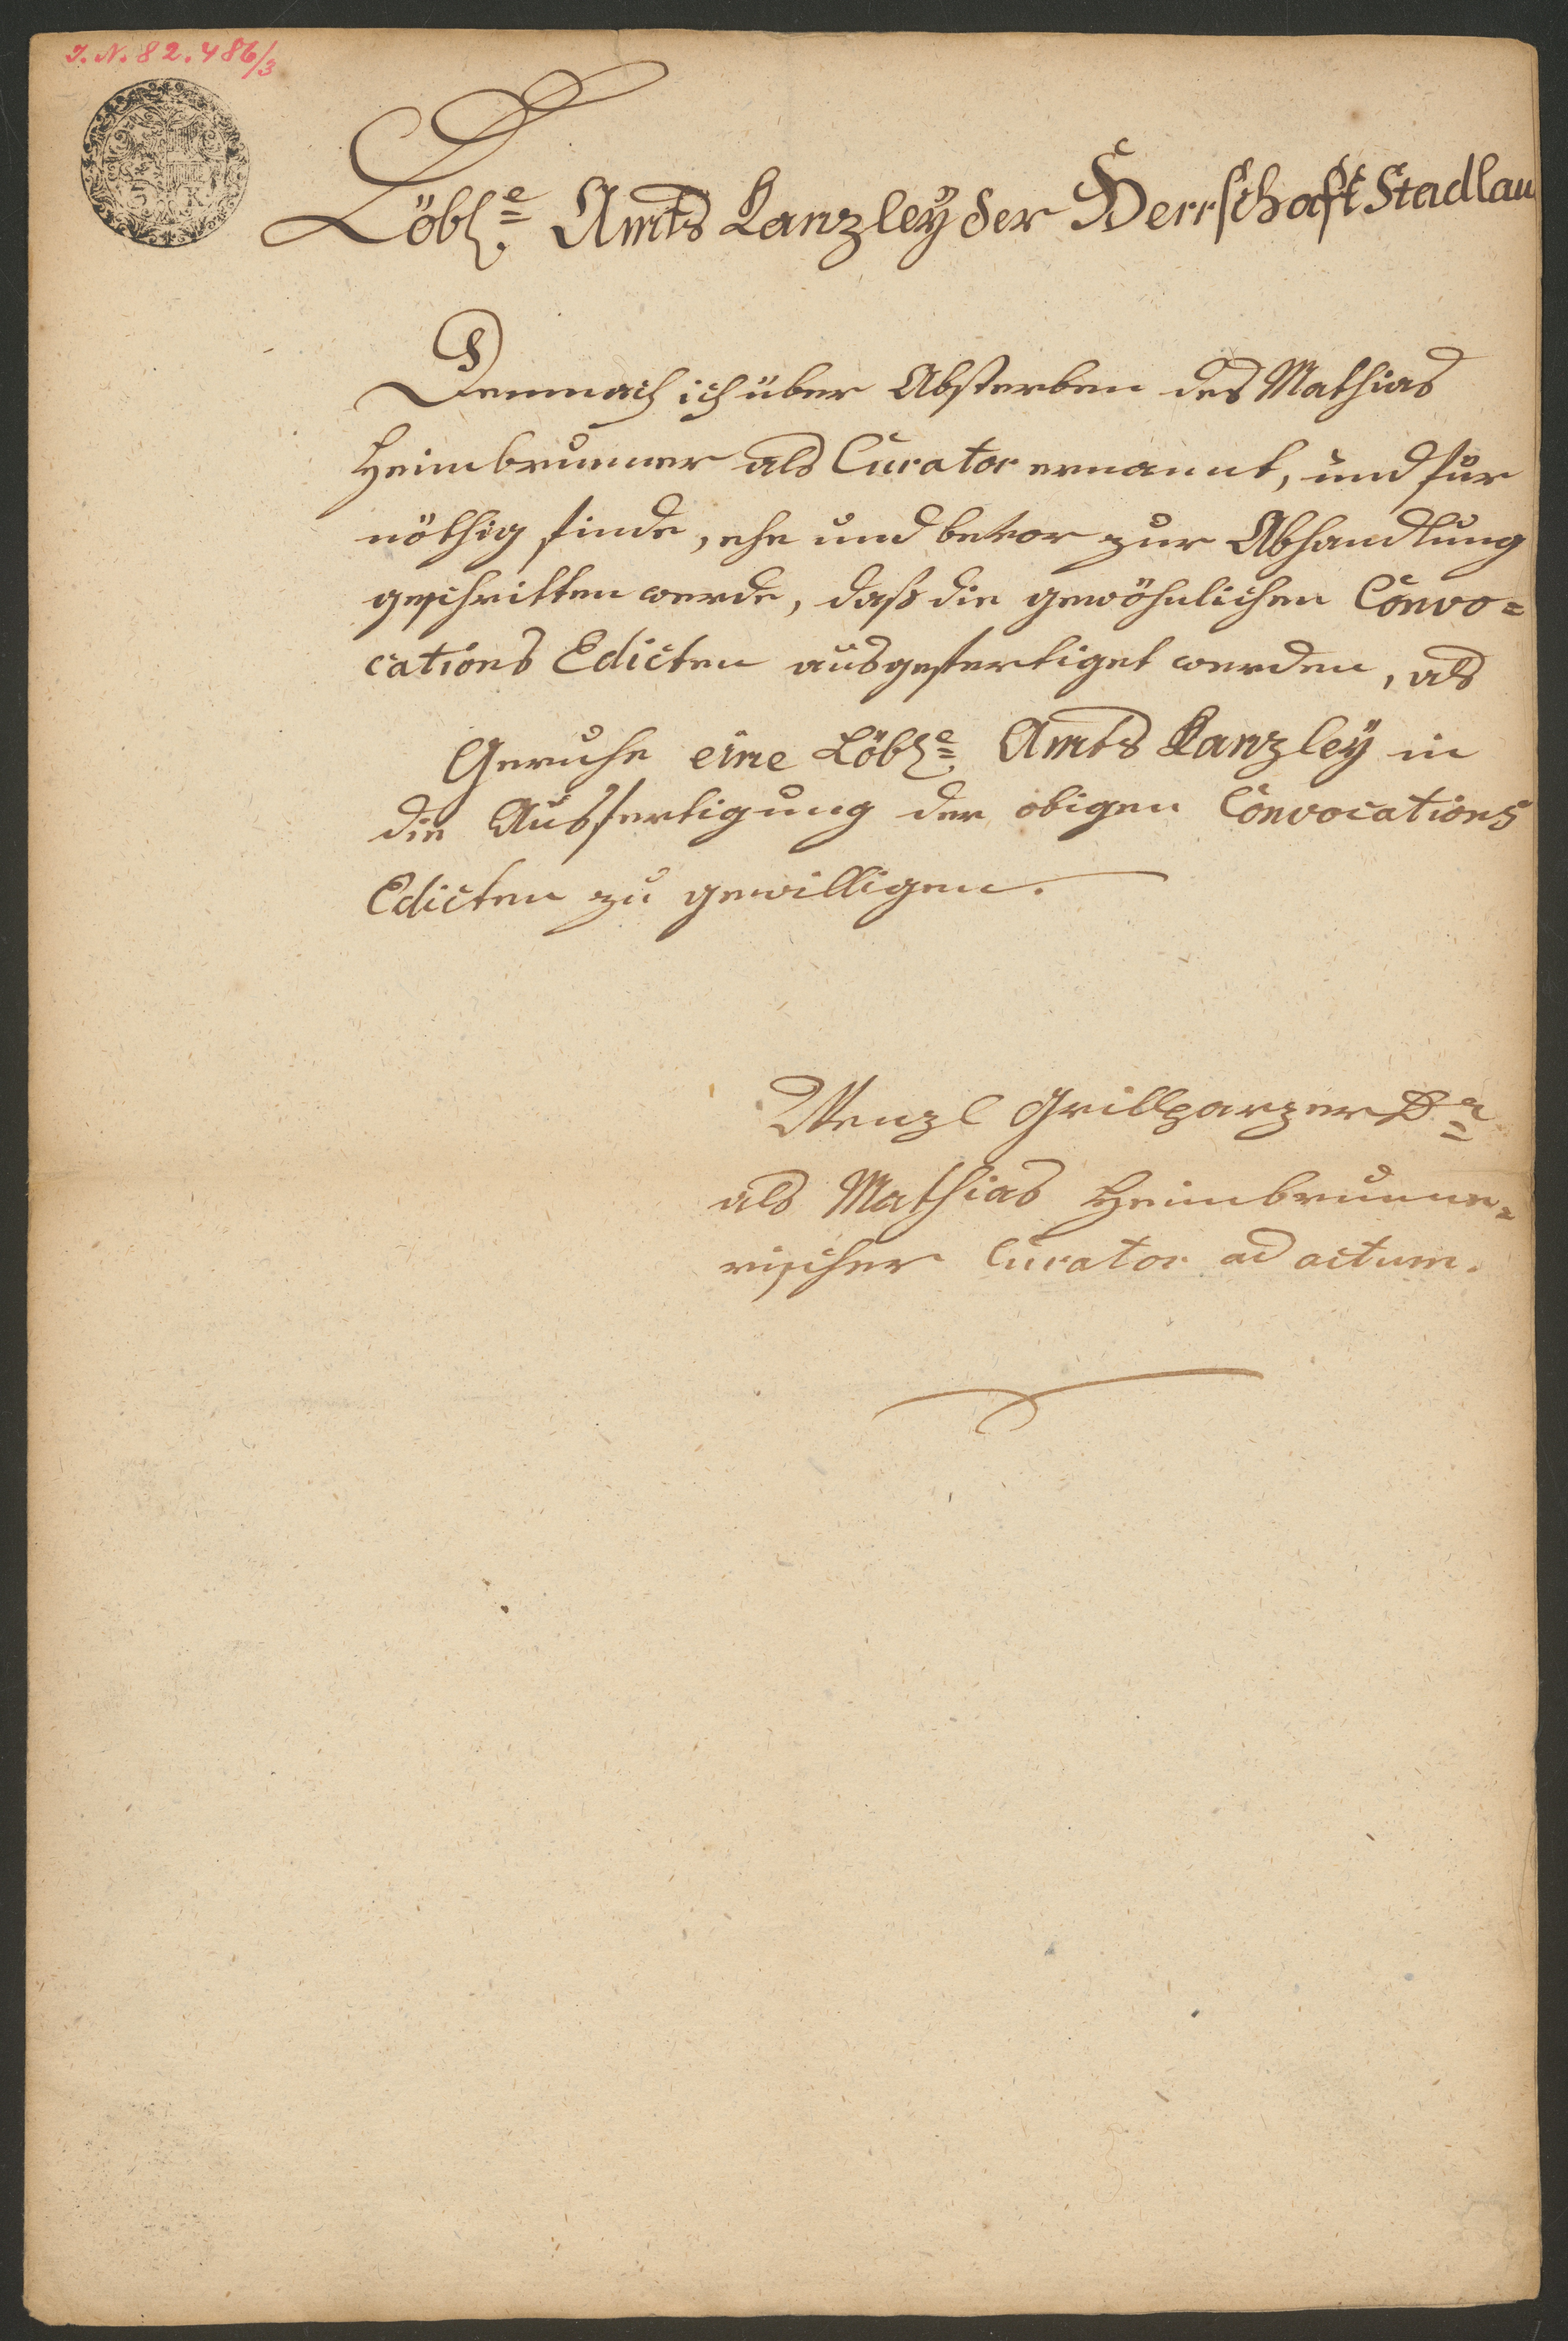 J. N. 82.486/3
3 K
Löbl.e Amts Kanzley der Herrschaft Stadlau
Demnach ich über Absterben des Mathias
Heimbrunner als Curator ernannt, und für
nöthig finde, ehe und bevor zur Abhandlung
geschritten werde, daß die gewöhnlichen Convo=
cations Edicten ausgefertiget werden, als
Geruhe eine Löbl.e Amts Kanzley in
die Ausfertigung der obigen Convocations
Edicten zu gewilligen.
Wenzl Grillparzer Dr
als Mathias Heimbrunne=
rischer Curator ad actum.